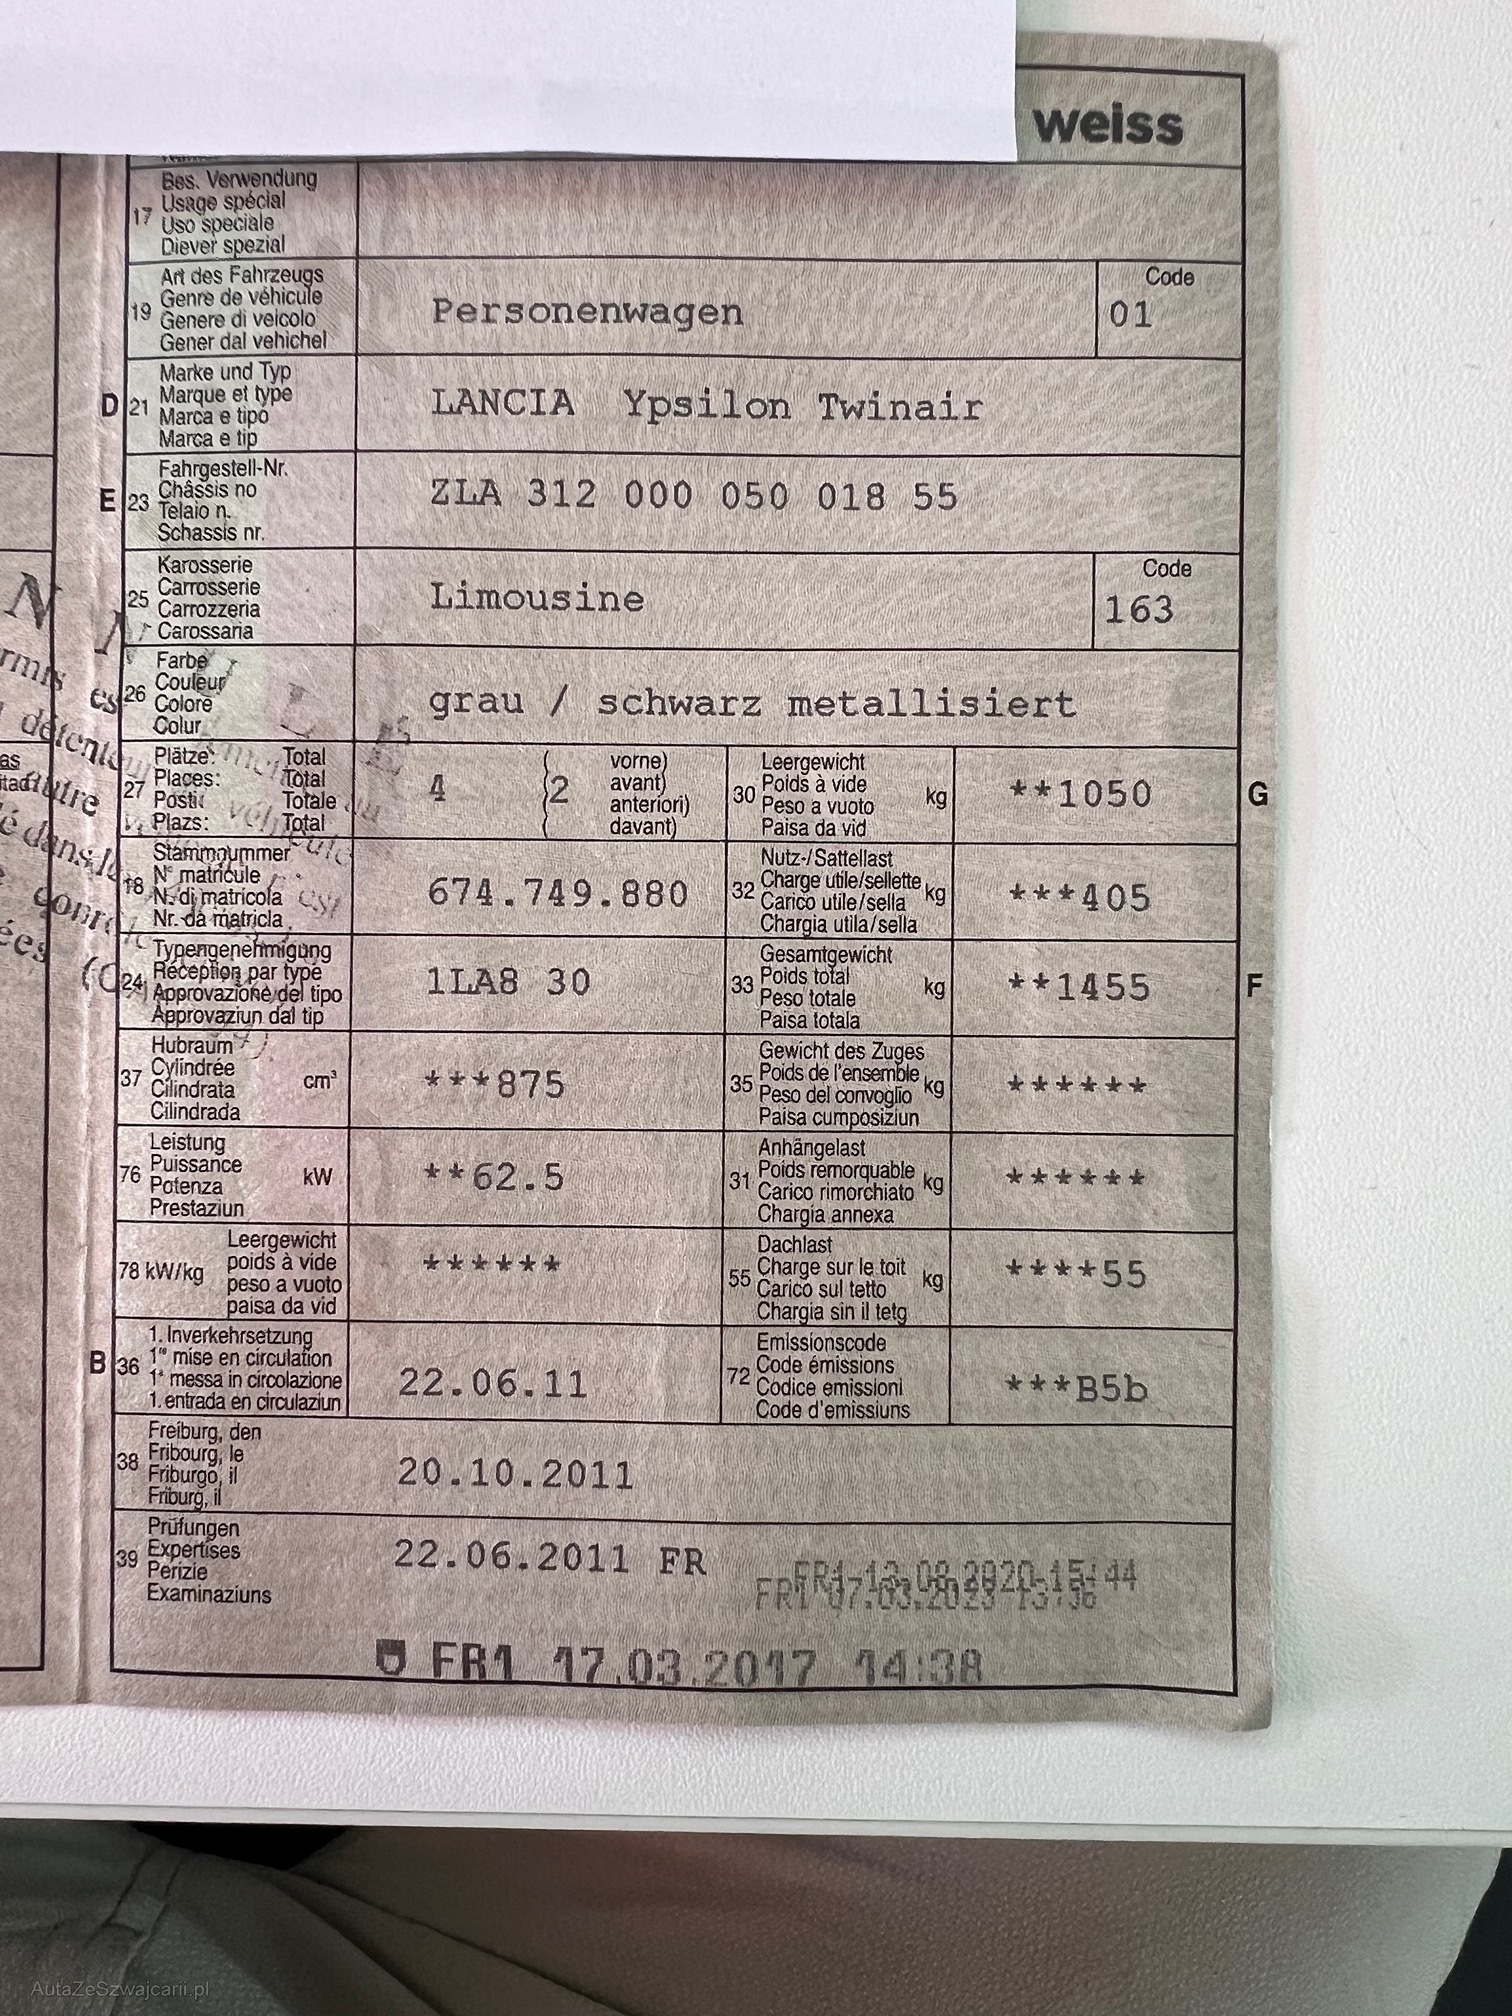 weiss
17 Bes. Verwendung
Usage spécial
Uso speciale
Diever spezial
19 Art des Fahrzeugs
Genre de véhicule
Genere di veicolo
Gener dal vehichel
Personenwagen
Code
01
D 21 Marke und Typ
Marque et type
Marca e tipo
Marca e tip
LANCIA Ypsilon Twinair
E 23 Fahrgestell-Nr.
Châssis no
Telaio n.
Schassis nr.
ZLA 312 000 050 018 55
25 Karosserie
Carrosserie
Carrozzeria
Carossaria
Limousine
Code
163
26 Farbe
Couleur
Colore
Colur
grau / schwarz metallisiert
27 Plätze: Total
Places: Total
Posti: Totale
Plazs: Total
4 (2 vorne)
avant)
anteriori)
davant)
30 Leergewicht
Poids à vide
Peso a vuoto
Paisa da vid
kg
**1050
G
18 Stammnummer
N° matricule
N. di matricola
Nr. da matricla
674.749.880
32 Nutz-/Sattellast
Charge utile/sellette
Carico utile/sella
Chargia utila/sella
kg
***405
24 Typengenehmigung
Réception par type
Approvazione del tipo
Approvaziun dal tip
1LA8 30
33 Gesamtgewicht
Poids total
Peso totale
Paisa totala
kg
**1455
F
37 Hubraum
Cylindrée
Cilindrata
Cilindrada
cm³
***875
35 Gewicht des Zuges
Poids de l'ensemble
Peso del convoglio
Paisa cumposiziun
kg
******
76 Leistung
Puissance
Potenza
Prestaziun
kW
**62.5
31 Anhängelast
Poids remorquable
Carico rimorchiato
Chargia annexa
kg
******
78 kW/kg
Leergewicht
poids à vide
peso a vuoto
paisa da vid
******
55 Dachlast
Charge sur le toit
Carico sul tetto
Chargia sin il tetg
kg
****55
B 36 1. Inverkehrsetzung
1re mise en circulation
1a messa in circolazione
1. entrada en circulaziun
22.06.11
72 Emissionscode
Code émissions
Codice emissioni
Code d'emissiuns
***B5b
38 Freiburg, den
Fribourg, le
Friburgo, il
Friburg, il
20.10.2011
39 Prüfungen
Expertises
Perizie
Examinaziuns
22.06.2011 FR
FR1 13.08.2020 15:44
FR1 07.03.2023 13:36
FR1 17.03.2017 14:38
AutaZeSzwajcarii.pl